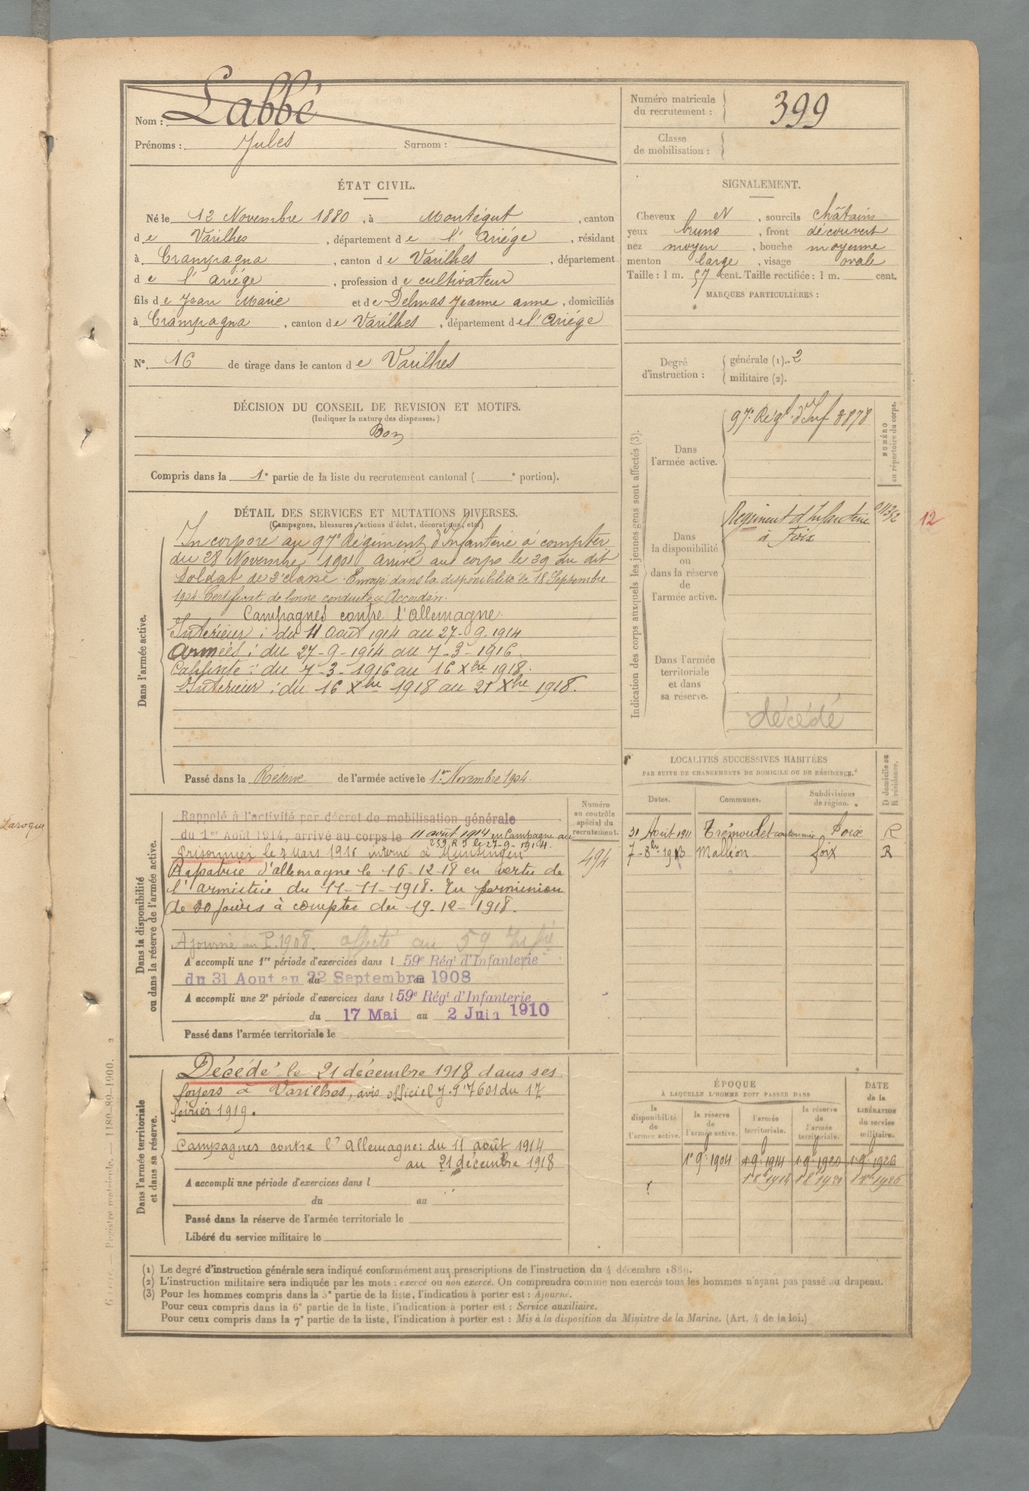 Nom : Labbé
Prénoms : Jules Surnom :
Numéro matricule du recrutement : 399
Classe de mobilisation :
ÉTAT CIVIL.
Né le 12 Novembre 1880, à Montégut, canton
de Varilhes, département de l'Ariége, résidant
à Crampagna, canton de Varilhes, département
de l'ariége, profession de cultivateur
fils de Jean Marie et de Delmas Jeanne anne, domiciliés
à Crampagna, canton de Varilhes, département de l'Ariége
N° 16 de tirage dans le canton de Varilhes
SIGNALEMENT.
Cheveux N, sourcils châtains
yeux bruns, front découvert
nez moyen, bouche moyenne
menton large, visage ovale
Taille : 1 m. 57 cent. Taille rectifiée : 1 m. cent.
MARQUES PARTICULIÈRES :
Degré d'instruction : générale (1). 2
militaire (2).
DÉCISION DU CONSEIL DE REVISION ET MOTIFS.
(Indiquer la nature des dispenses.)
Bon
Compris dans la 1e partie de la liste du recrutement cantonal ( e portion).
DÉTAIL DES SERVICES ET MUTATIONS DIVERSES.
(Campagnes, blessures, actions d'éclat, décorations, etc.)
Dans l'armée active.
Incorporé au 97e Régiment d'Infanterie à compter
du 28 Novembre 1901 arrivé au corps le 29 du dit
soldat de 2e classe. Envoyé dans la disponibilité le 18 Septembre
1904 Certificat de bonne conduite « Accordé »
Campagnes contre l'Allemagne
Intérieur : du 11 août 1914 au 27-9-1914
Armées : du 27-9-1914 au 7-3-1916
Captivité : du 7-3-1916 au 16 Xbre 1918
Intérieur : du 16 Xbre 1918 au 21 Xbre 1918.
Passé dans la Réserve de l'armée active le 1er Novembre 1904
Indication des corps auxquels les jeunes gens sont affectés (3).
NUMÉRO au répertoire du corps.
Dans l'armée active. 97e Régt d'Inf 8878
Dans la disponibilité ou dans la réserve de l'armée active.
Régiment d'Infanterie
à Foix
12
Dans l'armée territoriale et dans sa réserve.
décédé
Dans la disponibilité ou dans la réserve de l'armée active.
Numéro au contrôle spécial du recrutement.
494
Rappelé à l'activité par décret de mobilisation générale
du 1er Août 1914, arrivé au corps le 11 août 1914 en Campagne au
259 R I le 27-9-1914
prisonnier le 7 Mars 1916 interné à Munsingen
Rapatrié d'allemagne le 16-12-18 en vertu de
l'armistice du 11-11-1918. En permission
de 30 jours à compter du 19-12-1918.
Ajourné en P. 1908. affecté au 59 Infie
A accompli une 1re période d'exercices dans l 59e Régt d'Infanterie
du 31 Aout au 22 Septembre 1908
A accompli une 2e période d'exercices dans l 59e Régt d'Infanterie
du 17 Mai au 2 Juin 1910
Passé dans l'armée territoriale le
Dans l'armée territoriale et dans sa réserve.
Décédé le 21 décembre 1918 dans ses
foyers à Varilhes, avis officiel J-97601 du 17
février 1919.
Campagnes contre l'Allemagne du 11 août 1914
au 21 décembre 1918
A accompli une période d'exercices dans l
du au
Passé dans la réserve de l'armée territoriale le
Libéré du service militaire le
LOCALITÉS SUCCESSIVES HABITÉES
PAR SUITE DE CHANGEMENTS DE DOMICILE OU DE RÉSIDENCE.
Dates. Communes. Subdivisions de région. D domicile ou R résidence.
31 Août 1911 Trémoulet Foix R
7-8bre 1913 Malléon foix R
ÉPOQUE
À LAQUELLE L'HOMME DOIT PASSER DANS
la disponibilité de l'armée active. la réserve de l'armée active. l'armée territoriale. la réserve de l'armée territoriale. DATE de la LIBÉRATION du service militaire.
1er 9bre 1904 1er 9bre 1914 1er 9bre 1920 1er 9bre 1926
(1) Le degré d'instruction générale sera indiqué conformément aux prescriptions de l'instruction du 4 décembre 1889.
(2) L'instruction militaire sera indiquée par les mots : exercé ou non exercé. On comprendra comme non exercés tous les hommes n'ayant pas passé au drapeau.
(3) Pour les hommes compris dans la 5e partie de la liste, l'indication à porter est : Ajourné.
Pour ceux compris dans la 6e partie de la liste, l'indication à porter est : Service auxiliaire.
Pour ceux compris dans la 7e partie de la liste, l'indication à porter est : Mis à la disposition du Ministre de la Marine. (Art. 4 de la loi.)